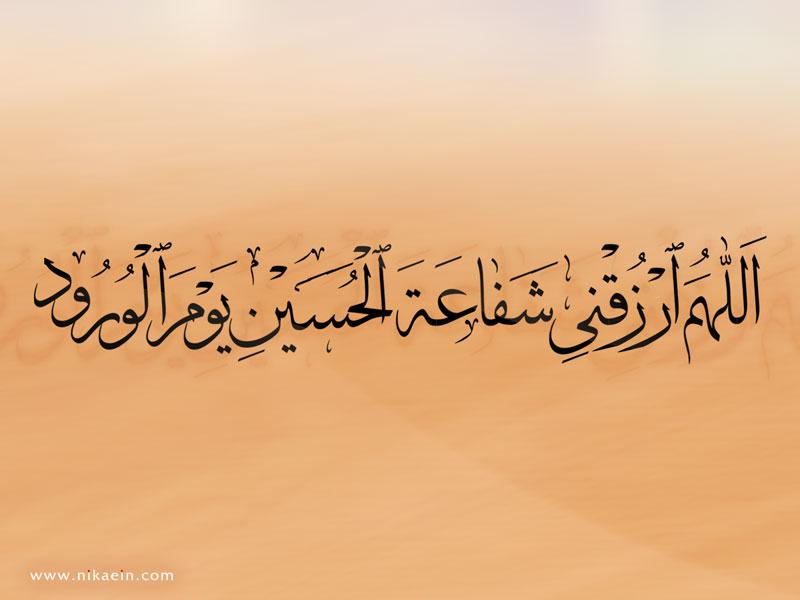 اَللّٰهُمَّ ٱرْزُقْنِي شَفَاعَةَ ٱلْحُسَيْنِ يَوْمَ ٱلْوُرُودِ
www.nikaein.com